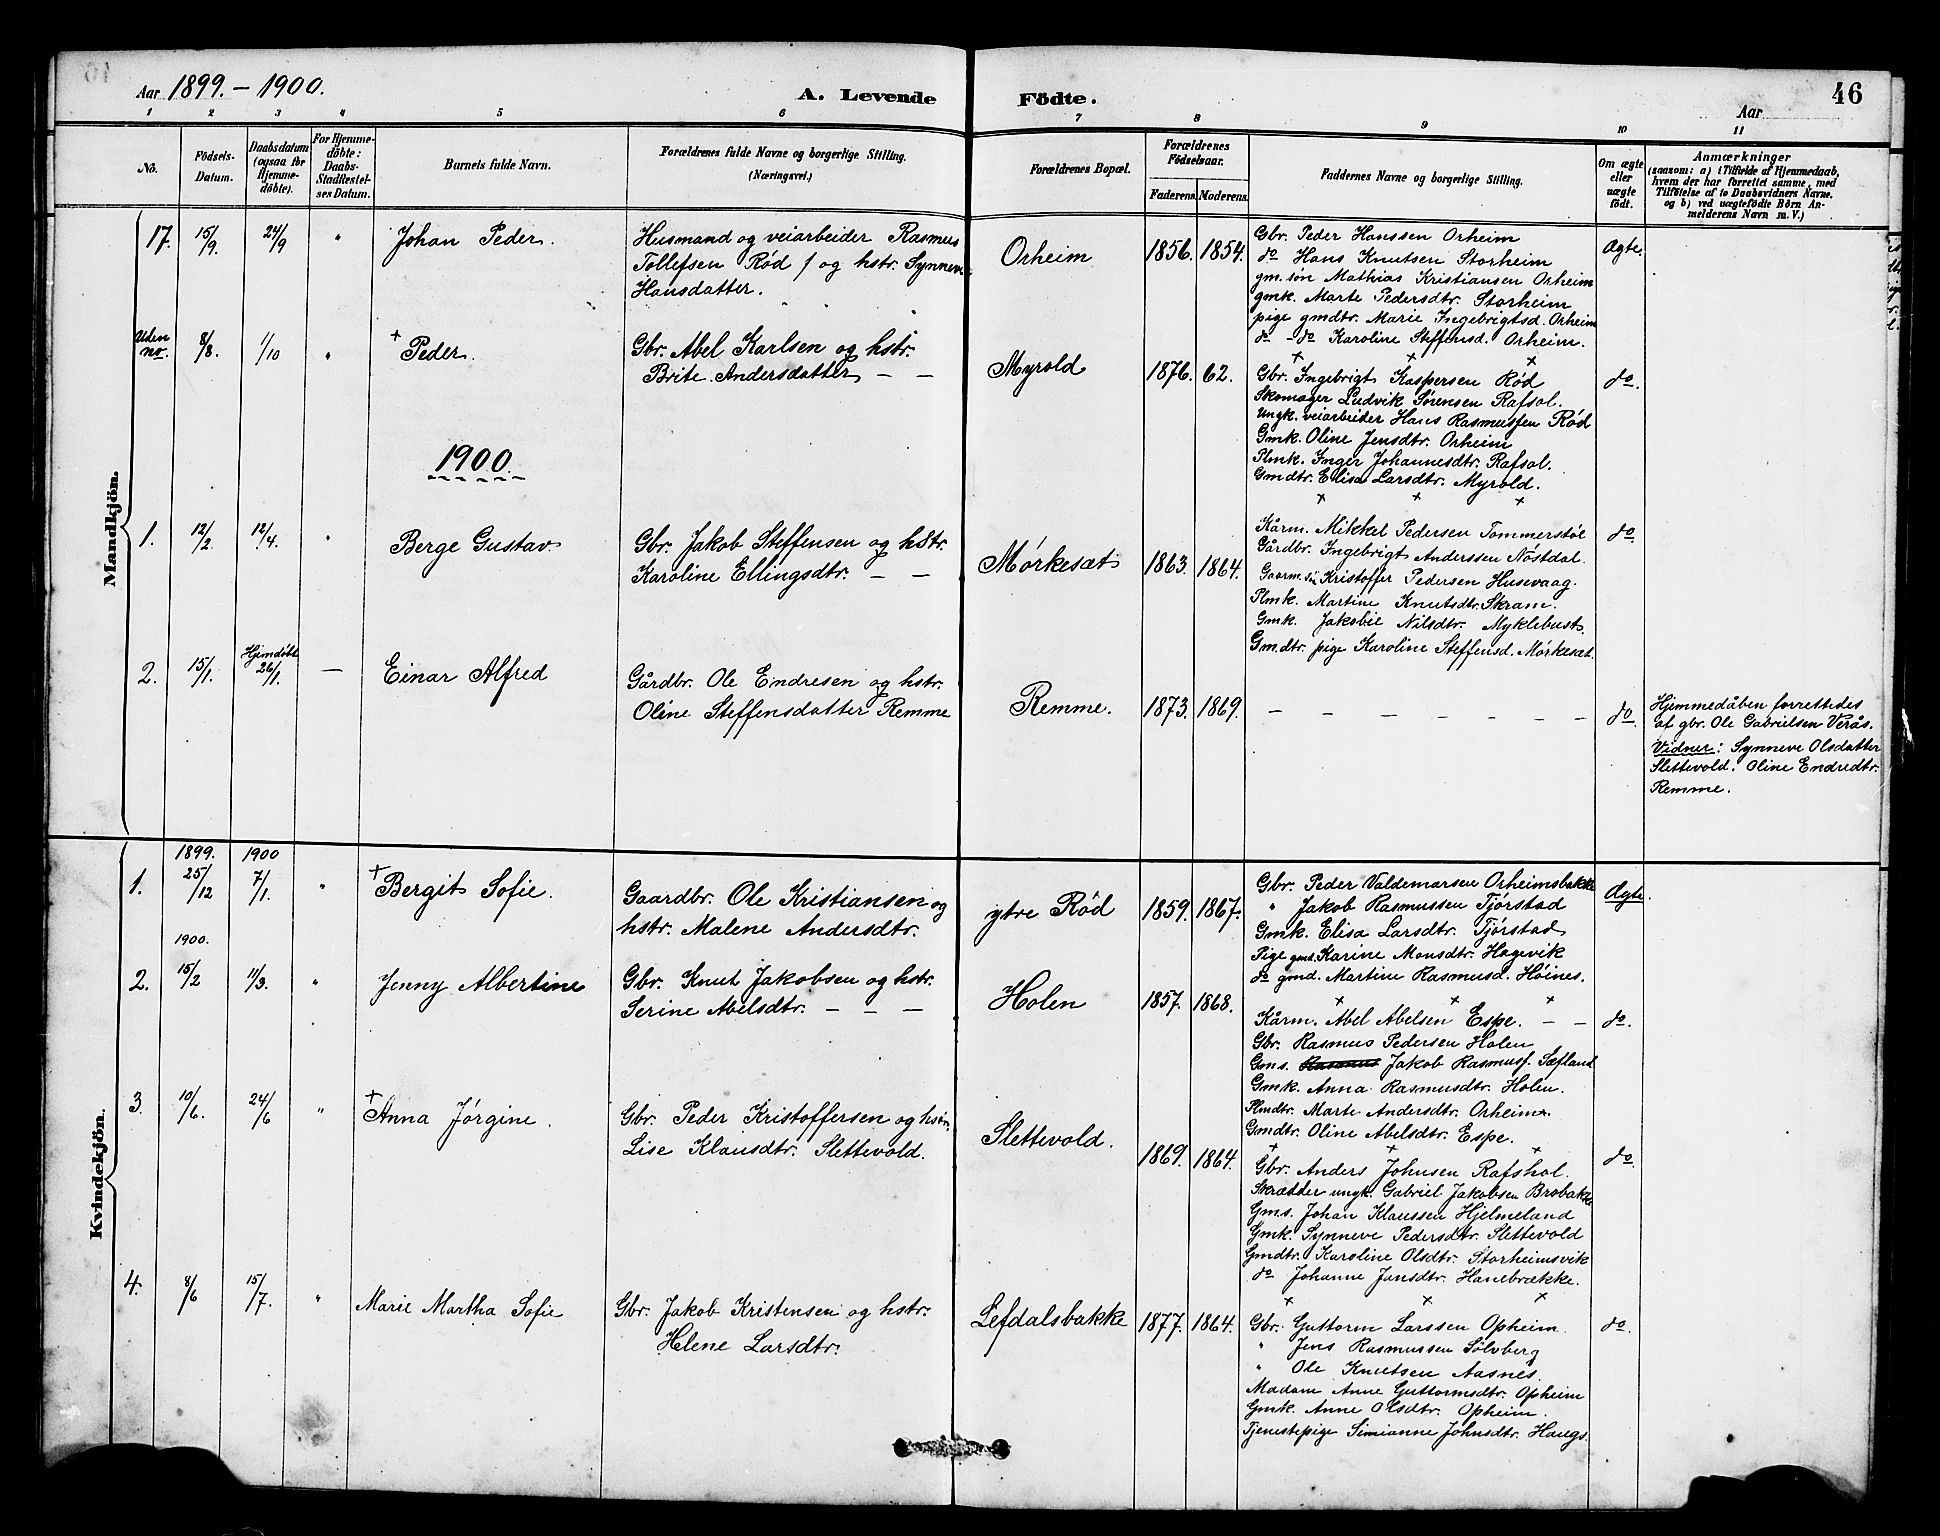 Aar 1899. - 1900.
A. Levende Födte.
Aar
46
1 2 3 4 5 6 7 8 9 10 11
No.
Födsels-Datum.
Daabsdatum (ogsaa for Hjemme-döbte).
For Hjemme-döbte: Daabs-Stadfæstel-ses Datum.
Barnets fulde Navn.
Forældrenes fulde Navne og borgerlige Stilling. (Næringsvei.)
Forældrenes Bopæl.
Forældrenes Födselsaar.
Faderens. Moderens.
Faddernes Navne og borgerlige Stilling.
Om ægte eller uægte födt.
Anmærkninger
(saasom: a) i Tilfælde af Hjemmedaab, hvem der har forrettet samme, med Tilföielse af to Daabsvidners Navne. og b) ved uægtefödte Börn An-melderens Navn m. V.)
Mandkjön.
17. 15/9 24/9 " Johan Peder.
Husmand og veiarbeider Rasmus
Tollefsen Rød / og hstr. Synneve
Hansdatter.
Orheim 1856. 1854.
Gbr. Peder Hanssen Orheim
do Hans Knutsen Storheim
gm. søn Mathias Kristiansen Orheim
gmk. Marte Pedersdtr. Storheim
pige gmdtr. Marie Ingebrigtsd. Orheim
do - do Karoline Steffensd. Orheim.
Ægte.
+ + +
Uden no. 8/8. 1/10 " + Peder.
Gbr. Abel Karlsen og hstr.
Brite Andersdatter — —
Myrold 1876. 62.
Gbr. Ingebrigt Kaspersen Rød
Skomager Ludvik Sørensen Rafsol.
Ungk. veiarbeider Hans Rasmussen Rød
Gmk. Oline Jensdtr. Orheim
Plmk. Inger Johannesdtr. Rafsol.
Gmdtr. Elisa Larsdtr. Myrold.
do.
+ + +
1900.
1. 12/2 12/4. " Berge Gustav
Gbr. Jakob Steffensen og hstr.
Karoline Ellingsdtr. — —
Mørkesæt 1863. 1864.
Kårm. Mikkel Pedersen Tommerstøl
Gårdbr. Ingebrigt Anderssen Nöstdal
Gaarm. sön Kristoffer Pedersen Husevaag.
Plmk. Martine Knutsdtr. Skram.
Gmk. Jakobie Nilsdtr. Myklebust.
Gm.dtr. pige Karoline Steffensd. Mörkesæt.
do
2. 15/1. Hjemdøbt 26/1. — Einar Alfred
Gårdbr. Ole Endresen og hstr.
Oline Steffensdatter Remme
Remme. 1873. 1869. — — — — — — — do
Hjemmedåben forrettedes
af gbr. Ole Gabrielsen Verås.
Vidner: Synneve Olsdatter
Slettevold. Oline Endredtr.
Remme.
Kvindekjön.
1899. 1900
1. 25/12 7/1. " + Bergit Sofie.
Gaardbr. Ole Kristiansen og
hstr. Malene Andersdtr.
ytre Rød 1859. 1867.
Gbr. Peder Valdemarsen Orheimsbakke
" Jakob Rasmussen Tjørstad
Gmk. Elisa Larsdtr. Tjørstad
Pige gmd. Karine Monsdtr. Hagevik
do gmd. Martine Rasmusd. Höines.
Ægte.
+ + +
1900.
2. 15/2 11/3. " Jenny Albertine
Gbr. Knut Jakobsen og hstr.
Serine Abelsdtr. — — —
Holen 1857. 1868.
Kårm. Abel Abelsen Espe. — —
Gbr. Rasmus Pedersen Holen
Gms. Rasmus Jakob Rasmusf. Sæfland
Gmk. Anna Rasmusdtr. Holen.
Plmdtr. Marte Andersdtr. Orheim.
Gmdtr. Oline Abelsdtr. Espe.
do.
+ + +
3. 10/6. 24/6 " + Anna Jørgine.
Gbr. Peder Kristoffersen og hstr.
Lise Klausdtr. Slettevold.
Slettevold. 1869. 1864.
Gbr. Anders Johnsen Rafshol.
Skrædder ungk. Gabriel Jakobsen Brobakke
Gms. Johan Klaussen Hjelmeland
Gmk. Synneve Pedersdtr. Slettevold
Gmdtr. Karoline Olsdtr. Storheimsvik
do Johanne Jansdtr. Hanebrække.
do.
+ + +
4. 8/6 15/7. " Marie Martha Sofie
Gbr. Jakob Kristensen og hstr.
Helene Larsdtr.
Lefdalsbakke 1877. 1864.
Gbr. Guttorm Larssen Opheim.
" Jens Rasmussen Sölvberg
" Ole Knutsen Aasnes.
Madam Anne Guttormsdtr. Opheim
Gmk. Anne Olsdtr. Opheim.
Tjenestepige Simianne Johnsdtr. Haugs.
do.